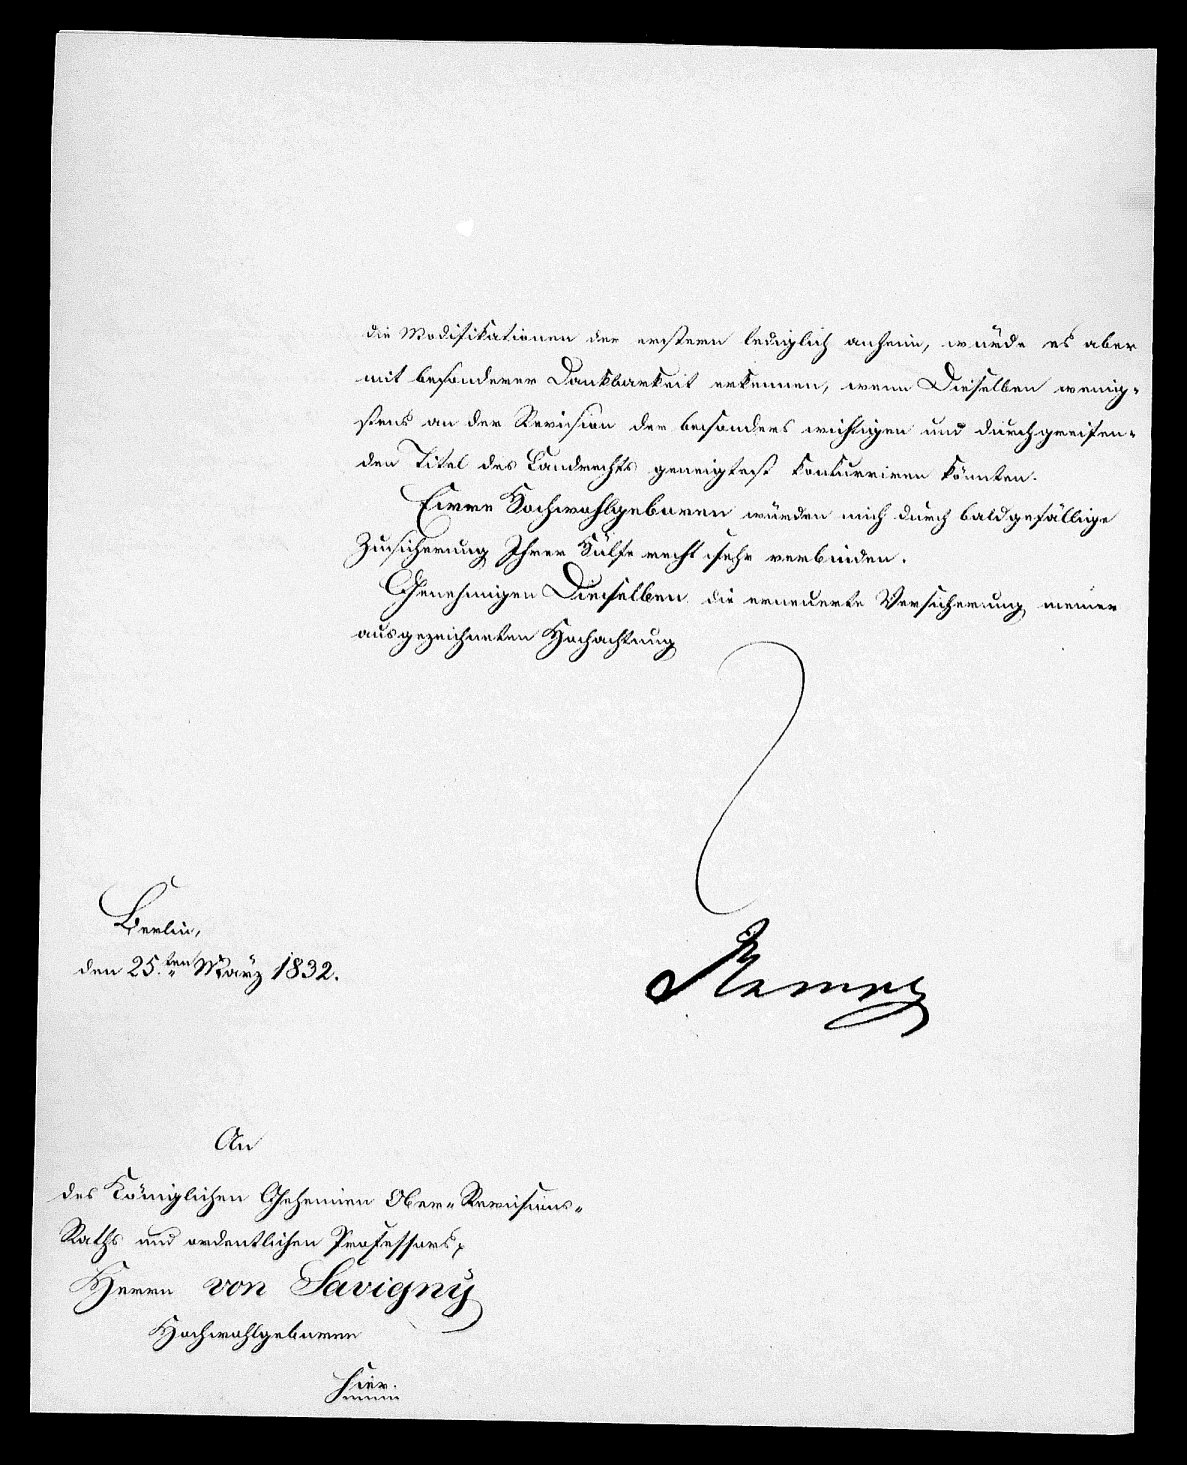 die Modifikationen der erstern lediglich anheim, würde es aber
mit besonderer Dankbarkeit erkennen, wenn Dieselben wenig-
stens an der Revision der besonders wichtigen und durchgreifen-
den Titel des Landrechts geneigtest konkurriren könnten.
Eurre Hochwohlgeboren würden mich durch baldgefällige
Zusicherung Ihrer Hülfe recht sehr verbinden.
Genehmigen Dieselben die erneuerte Versicherung meiner
ausgezeichneten Hochachtung
Berlin,
den 25.ten März 1832.
Kamptz
An
des Königlichen Geheimen Ober-Revisions-
Raths und ordentlichen Professors,
Herrn von Savigny
Hochwohlgeboren
hier.